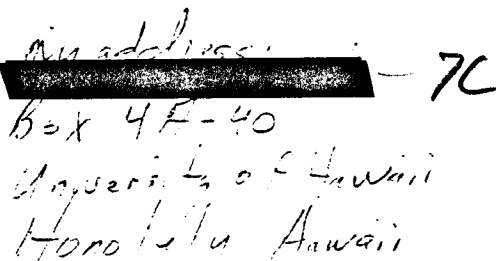 My address:
— 7C
Box 4A-40
University of Hawaii
Honolulu Hawaii